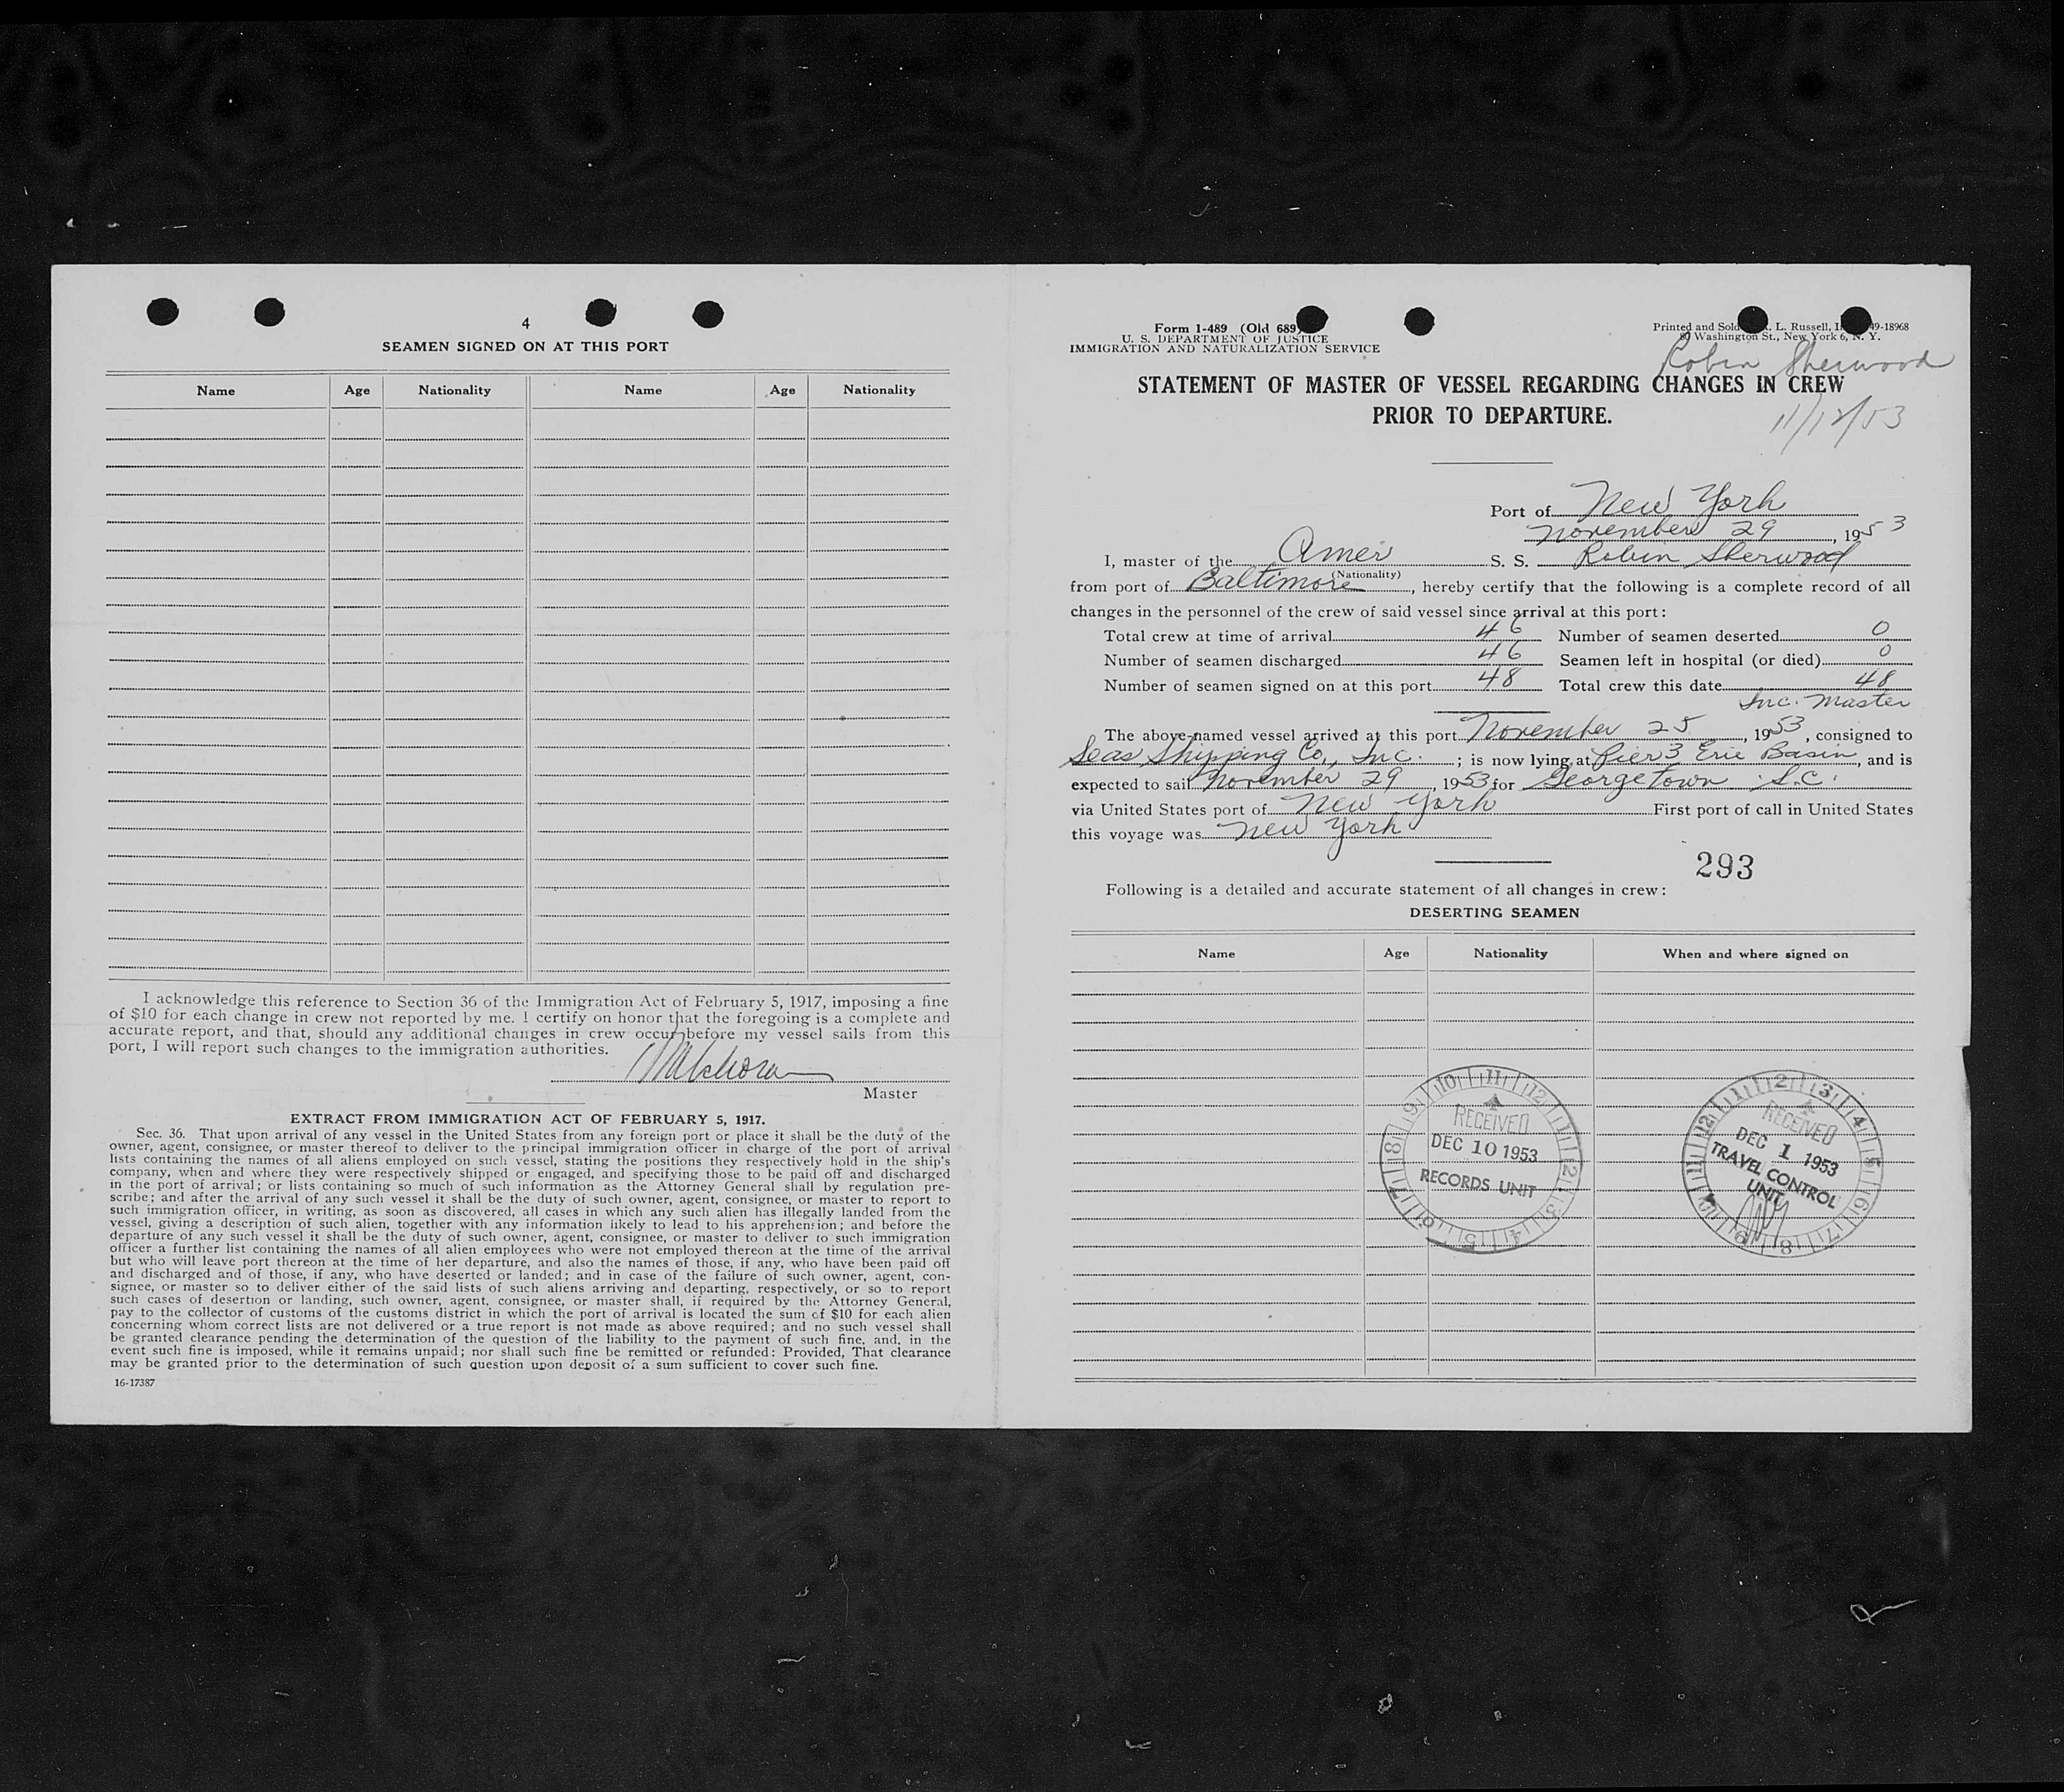 4
SEAMEN SIGNED ON AT THIS PORT
Name Age Nationality Name Age Nationality
I acknowledge this reference to Section 36 of the Immigration Act of February 5, 1917, imposing a fine
of $10 for each change in crew not reported by me. I certify on honor that the foregoing is a complete and
accurate report, and that, should any additional changes in crew occur before my vessel sails from this
port, I will report such changes to the immigration authorities.
Master
EXTRACT FROM IMMIGRATION ACT OF FEBRUARY 5, 1917.
Sec. 36. That upon arrival of any vessel in the United States from any foreign port or place it shall be the duty of the
owner, agent, consignee, or master thereof to deliver to the principal immigration officer in charge of the port of arrival
lists containing the names of all aliens employed on such vessel, stating the positions they respectively hold in the ship's
company, when and where they were respectively shipped or engaged, and specifying those to be paid off and discharged
in the port of arrival; or lists containing so much of such information as the Attorney General shall by regulation pre-
scribe; and after the arrival of any such vessel it shall be the duty of such owner, agent, consignee, or master to report to
such immigration officer, in writing, as soon as discovered, all cases in which any such alien has illegally landed from the
vessel, giving a description of such alien, together with any information likely to lead to his apprehension; and before the
departure of any such vessel it shall be the duty of such owner, agent, consignee, or master to deliver to such immigration
officer a further list containing the names of all alien employees who were not employed thereon at the time of the arrival
but who will leave port thereon at the time of her departure, and also the names of those, if any, who have been paid off
and discharged and of those, if any, who have deserted or landed; and in case of the failure of such owner, agent, con-
signee, or master so to deliver either of the said lists of such aliens arriving and departing, respectively, or so to report
such cases of desertion or landing, such owner, agent, consignee, or master shall, if required by the Attorney General,
pay to the collector of customs of the customs district in which the port of arrival is located the sum of $10 for each alien
concerning whom correct lists are not delivered or a true report is not made as above required; and no such vessel shall
be granted clearance pending the determination of the question of the liability to the payment of such fine, and, in the
event such fine is imposed, while it remains unpaid; nor shall such fine be remitted or refunded: Provided, That clearance
may be granted prior to the determination of such question upon deposit of a sum sufficient to cover such fine.
16-17387
Form 1-489 (Old 689)
U. S. DEPARTMENT OF JUSTICE
IMMIGRATION AND NATURALIZATION SERVICE
Printed and Sold L. Russell, 49-18968
80 Washington St., New York 6, N. Y.
Robin Sherwood
STATEMENT OF MASTER OF VESSEL REGARDING CHANGES IN CREW
PRIOR TO DEPARTURE.
11/12/53
Port of New York
November 29, 1953
I, master of the Amer S. S. Robin Sherwood
(Nationality)
from port of Baltimore, hereby certify that the following is a complete record of all
changes in the personnel of the crew of said vessel since arrival at this port:
Total crew at time of arrival 46 Number of seamen deserted 0
Number of seamen discharged 46 Seamen left in hospital (or died) 0
Number of seamen signed on at this port 48 Total crew this date 48
Inc. Master
The above-named vessel arrived at this port November 25, 1953, consigned to
Seas Shipping Co., Inc.; is now lying at Pier 3 Erie Basin, and is
expected to sail November 29, 1953 for Georgetown S.C.
via United States port of New York First port of call in United States
this voyage was New York
293
Following is a detailed and accurate statement of all changes in crew:
DESERTING SEAMEN
Name Age Nationality When and where signed on
RECEIVED
DEC 10 1953
RECORDS UNIT
RECEIVED
DEC 1 1953
TRAVEL CONTROL
UNIT